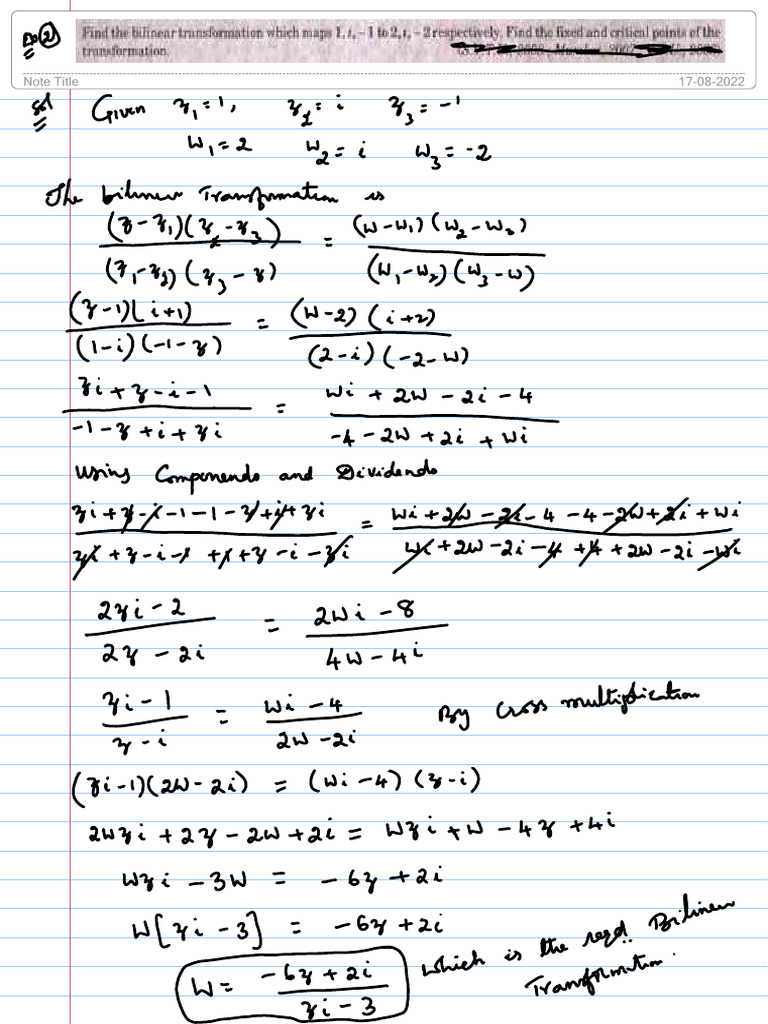 Find the bilinear transformation which maps 1, i, – 1 to 2, i, – 2 respectively. Find the fixed and critical points of the
transformation.
Note Title 17-08-2022
Sol Given z₁=1, z₂=i z₃=-1
w₁=2 w₂=i w₃=-2
The bilinear Transformation is
(z-z₁)(z₂-z₃)/(z₁-z₂)(z₃-z) = (w-w₁)(w₂-w₃)/(w₁-w₂)(w₃-w)
(z-1)(i+1)/(1-i)(-1-z) = (w-2)(i+2)/(2-i)(-2-w)
zi+z-i-1/-1-z+i+zi = wi+2w-2i-4/-4-2w+2i+wi
Using Componendo and Dividendo
zi+z-i-1-1-z+i+zi/zi+z-i-1+1+z-i-zi = wi+2w-2i-4-4-2w+2i+wi/wi+2w-2i-4+4+2w-2i-wi
2zi-2/2z-2i = 2wi-8/4w-4i
zi-1/z-i = wi-4/2w-2i By cross multiplication
(zi-1)(2w-2i) = (wi-4)(z-i)
2wzi+2z-2w+2i = wzi+w-4z+4i
wzi-3w = -6z+2i
w[zi-3] = -6z+2i
w = -6z+2i/zi-3 which is the reqd. Bilinear
Transformation.